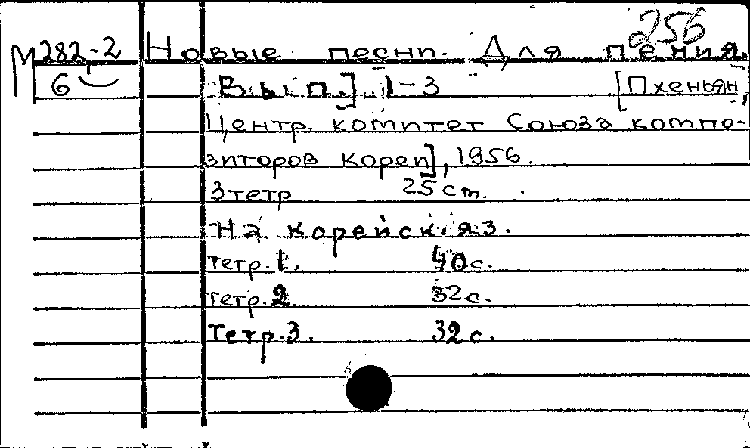 256
М 282-2 Новые песни. Для пения.
6 Вып.] 1-3 [Пхеньян,
Центр. комитет Союза компо-
зиторов Кореи], 1956.
3 тетр 25 cm.
На корейск. яз.
тетр. 1. 40 с.
тетр. 2 32 с.
тетр. 3. 32 с.